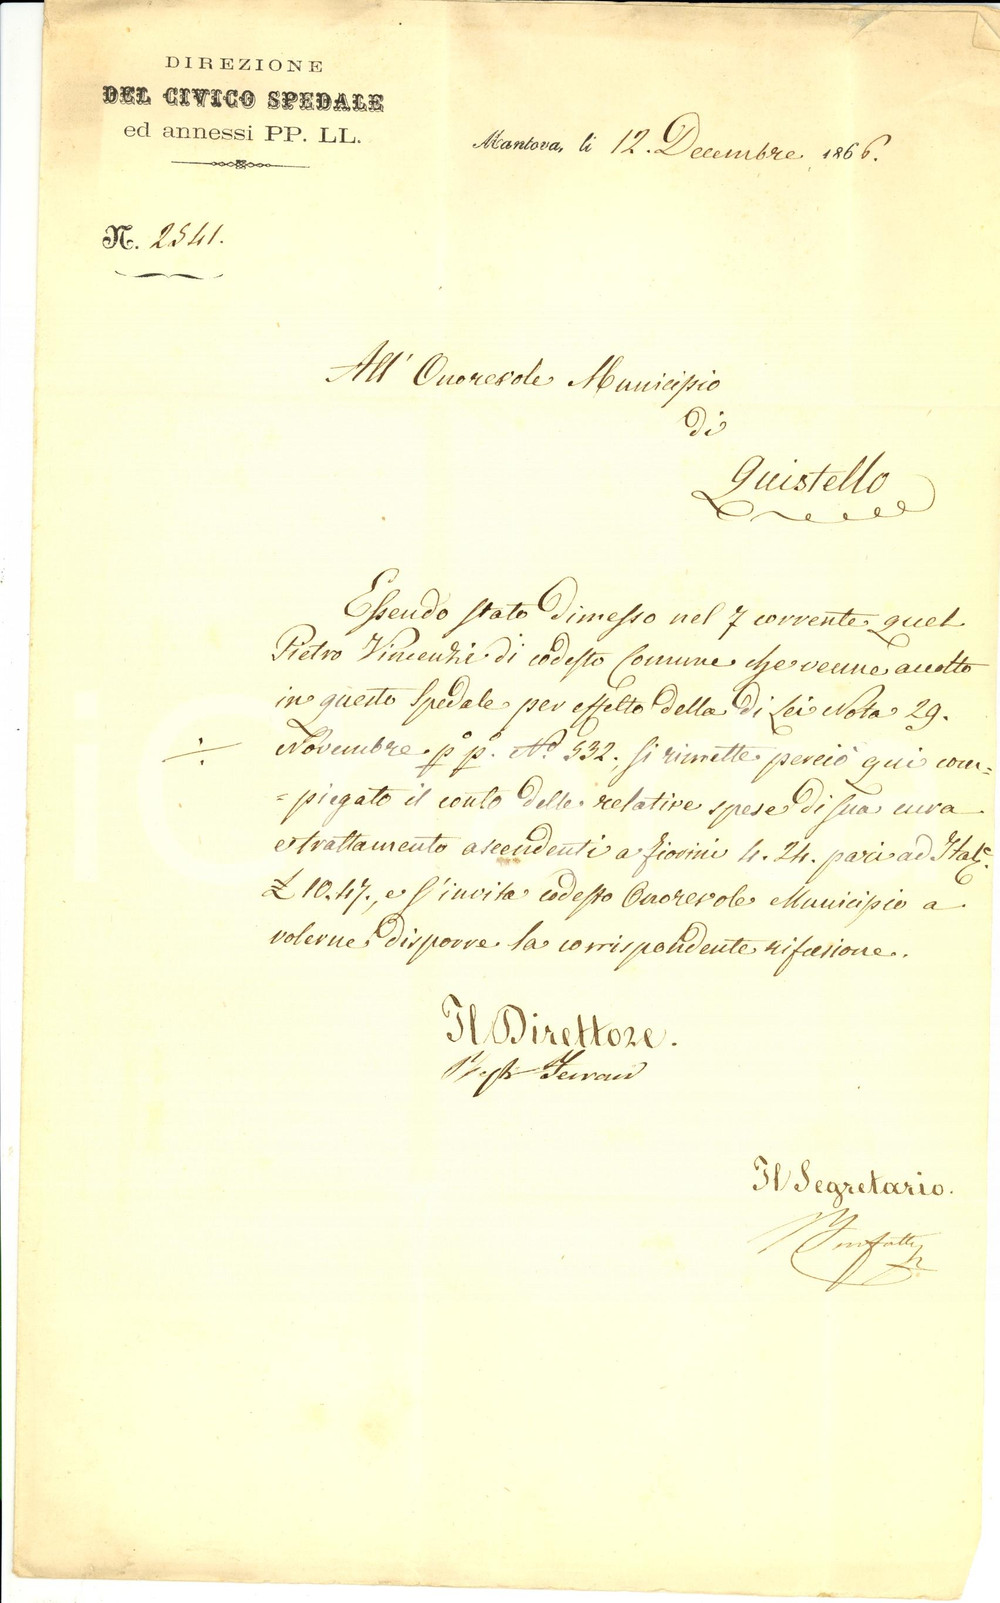 DIREZIONE
DEL CIVICO SPEDALE
ed annessi PP. LL.
Mantova, li 12. Decembre 1866.
N. 2541.
All' Onorevole Municipio
di
Quistello
Essendo stato dimesso nel 7 corrente quel
Pietro Vincenzi di codesto Comune che venne accolto
in questo Spedale per effetto della di Lei Nota 29.
Novembre p.º p.º Nº 532, si rimette perciò qui com=
=piegato il conto delle relative spese di sua cura
e trattamento ascendenti a fiorini 4.24. pari ad Itale
£ 10.47., e s'invita codesto Onorevole Municipio a
volerne disporre la corrispondente rifusione.
Il Direttore.
Ferrari
Il Segretario.